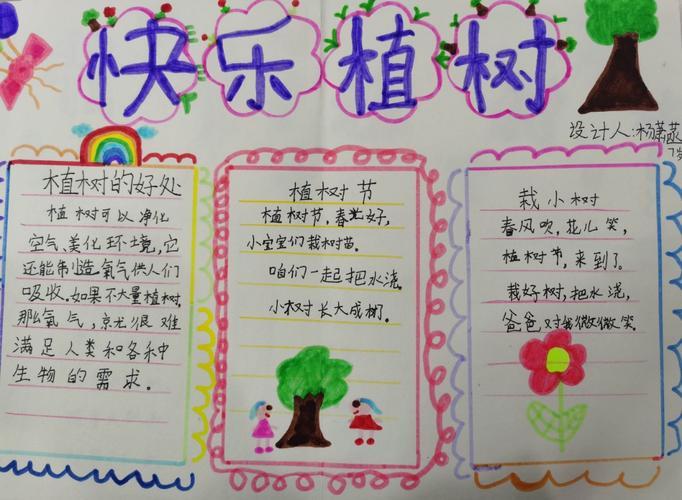 快乐植树
设计人:杨萧菠
7岁
植树的好处
植树可以净化
空气、美化环境,它
还能制造氧气供人们
吸收.如果不大量植树,
那么氧气,就很难
满足人类和各种
生物的需求。
植树节
植树节,春光好,
小宝宝们栽树苗。
咱们一起把水浇。
小树长大成树。
栽小树
春风吹,花儿笑,
植树节,来到了。
栽好树,把水浇,
爸爸对我微微笑。